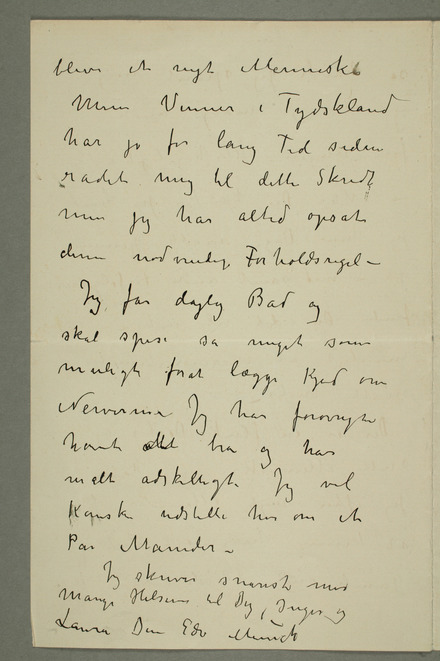 blive et nyt Menneske
Mine Venner i Tydskland
har jo for lang Tid siden
rådet mig til dette Skridt
men jeg har altid opsat
denne nødvendig Forholdsregel –
Jeg får daglig Bad og
skal spise så meget som
muligt forat lægge Kjød om
Nerverne Jeg har forøvrigt
havt det bra og har
malt adskilligt. Jeg vil
Kanske udstille her om et
Par Maaneder –
Jeg skriver snarest med
Mange Hilsener til Dig, Inger og
Laura Din Edv Munch